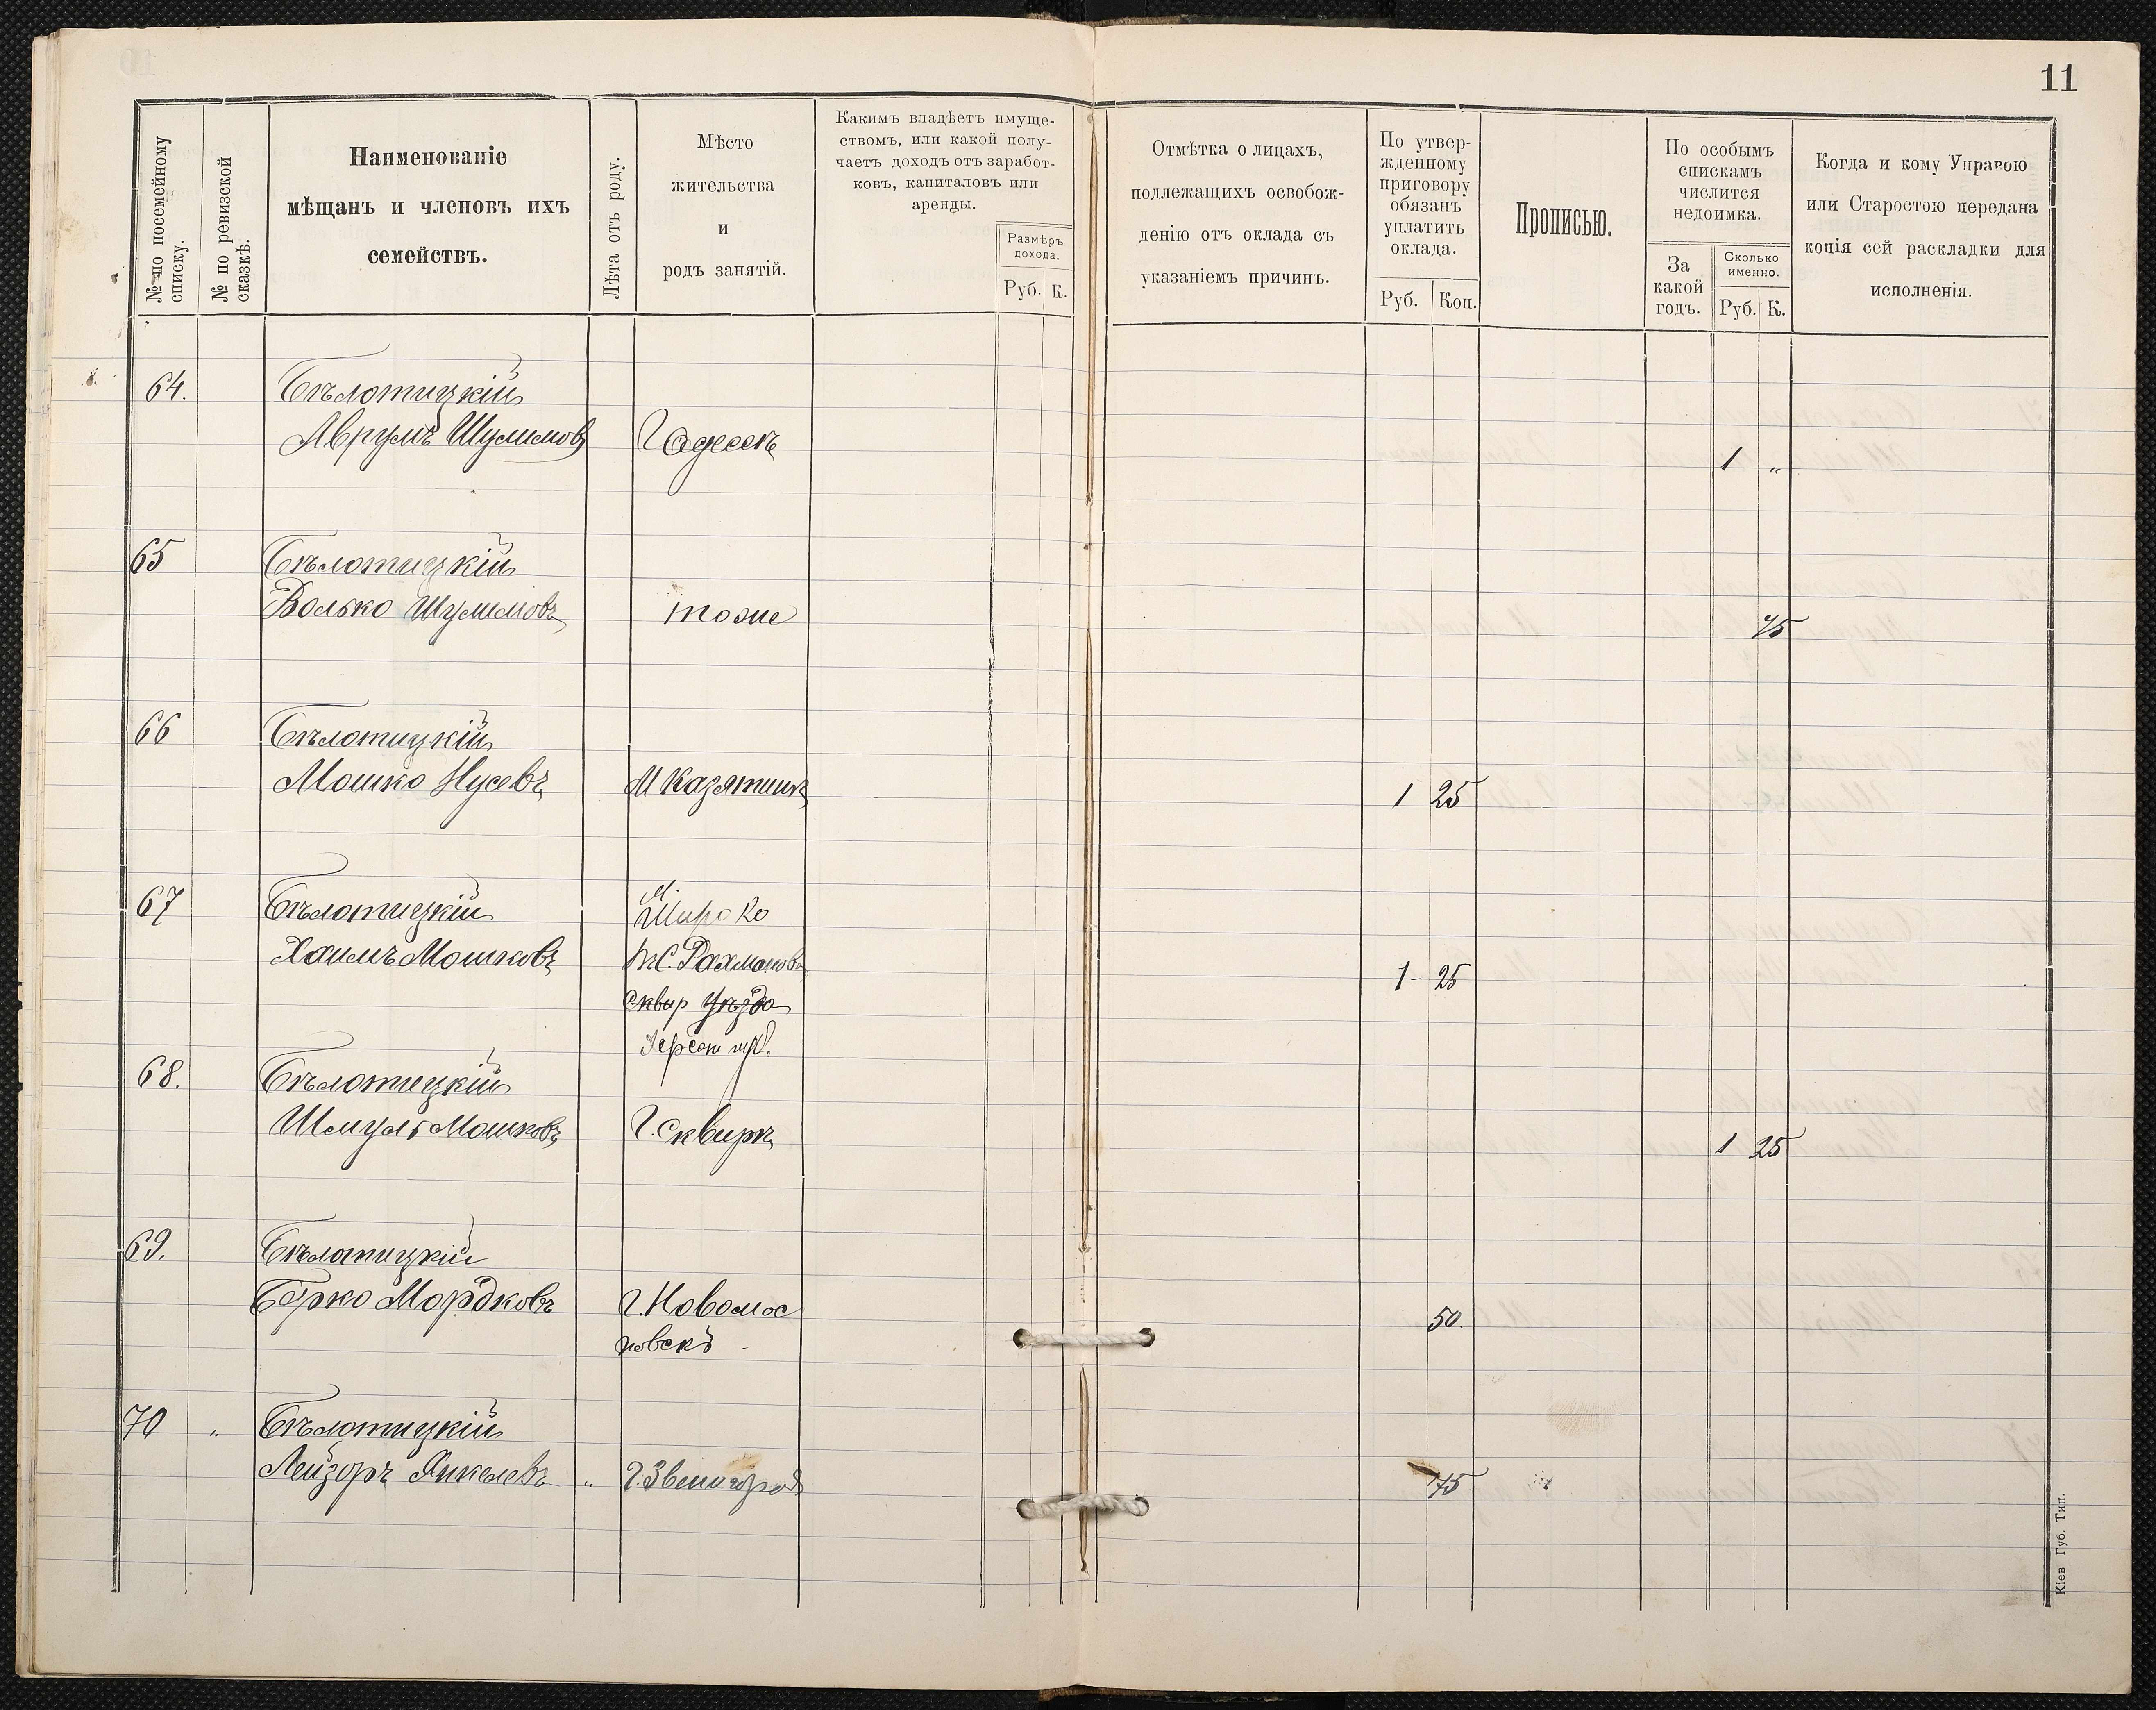 11
№ по посемейному
списку.
№ по ревизской
сказкѣ.
Наименованіе
мѣщанъ и членовъ ихъ
семействъ.
Лѣта отъ роду.
Мѣсто
жительства
и
родъ занятій.
Какимъ владѣетъ имуще-
ствомъ, или какой полу-
чаетъ доходъ отъ заработ-
ковъ, капиталовъ или
аренды.
Размѣръ
дохода.
Руб. К.
Отмѣтка о лицахъ,
подлежащихъ освобож-
денію отъ оклада съ
указаніемъ причинъ.
По утвер-
жденному
приговору
обязанъ
уплатить
оклада.
Руб. Коп.
Прописью.
По особымъ
спискамъ
числится
недоимка.
За
какой
годъ.
Сколько
именно.
Руб. К.
Когда и кому Управою
или Старостою передана
копія сей раскладки для
исполненія.
64. Бѣлотицкій
Аврумъ Шулимовъ Г Одессѣ 1 "
65 Бѣлотицкій
Волько Шулимовъ тоже 75
66 Бѣлотицкій
Мошко Нусевъ М Казятинѣ 1 25
67 Бѣлотицкій М.
Широко
Хаимъ Мошковъ С. Рахмановѣ 1 25
Сквир Уѣзда
Херсон губ.
68. Бѣлотицкій
Шмуль Мошковъ Г. Сквирѣ 1 25
69. Бѣлотицкій
Берко Мордковъ Г. Новомос 50.
ковскъ
70 " Бѣлотицкій
Лейзоръ Янкелевъ " Г. Звенигород 75
Кіев Губ. Тип.